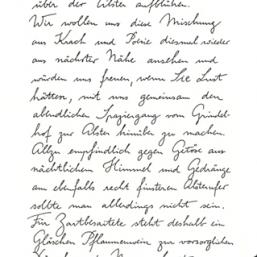 über der Alster aufblühen.
Wir wollen uns diese Mischung
aus Krach und Poesie diesmal wieder
aus nächster Nähe ansehen und
würden uns freuen, wenn Sie Lust
hätten, mit uns gemeinsam den
abendlichen Spaziergang vom Grindel-
hof zur Alster hinüber zu machen.
Allzu empfindlich gegen Getöse aus
nächtlichem Himmel und Gedränge
am ebenfalls recht finsteren Alsterufer
sollte man allerdings nicht sein.
Für Zartbesaitete steht deshalb ein
Gläschen Pflaumenwein zur vorsorglichen